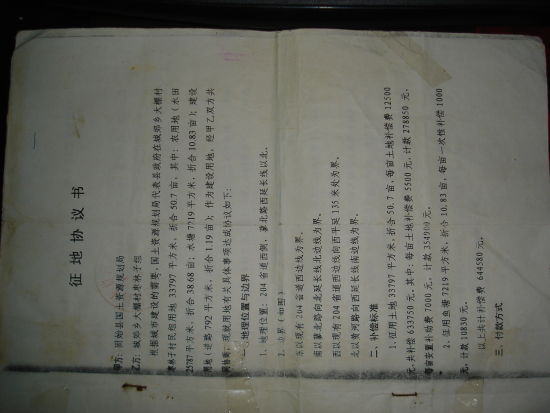 征地协议书
甲方：固始县国土资源规划局
乙方：城郊乡大棚村枣林子组
根据城市建设的需要，国土资源规划局代表县政府在城郊乡大棚村
枣林子村民组用地 33797 平方米，折合 50.7 亩，其中：农用地（水田
25787 平方米，折合 38.68 亩；水塘 7219 平方米，折合 10.83 亩）；建设
用地（道路 792 平方米，折合 1.19 亩）；作为建设用地，经甲乙双方共
同协商，现就用地有关具体事项达成协议如下：
一、地理位置与边界
1、地理位置：204 省道西侧，蒙北路西延长线以北。
2、边界（如图）
东以现有 204 省道西边线为界。
南以蒙北路向北延长线北边线为界。
西以现有 204 省道西边线向西平延 135 米处为界。
北以黄河路向西延长线南边线为界。
二、补偿标准
1、征用土地 33797 平方米，折合 50.7 亩，每亩土地补偿费 12500
元，共补偿 633750 元。其中：每亩土地补偿费 5500 元，计款 278850 元，
每亩安置补助费 7000 元，计款 354900 元。
2、征用鱼塘 7219 平方米，折合 10.83 亩，每亩一次性补偿 1000
元，计款 10830 元。
以上共计补偿费 644580 元。
三、付款方式